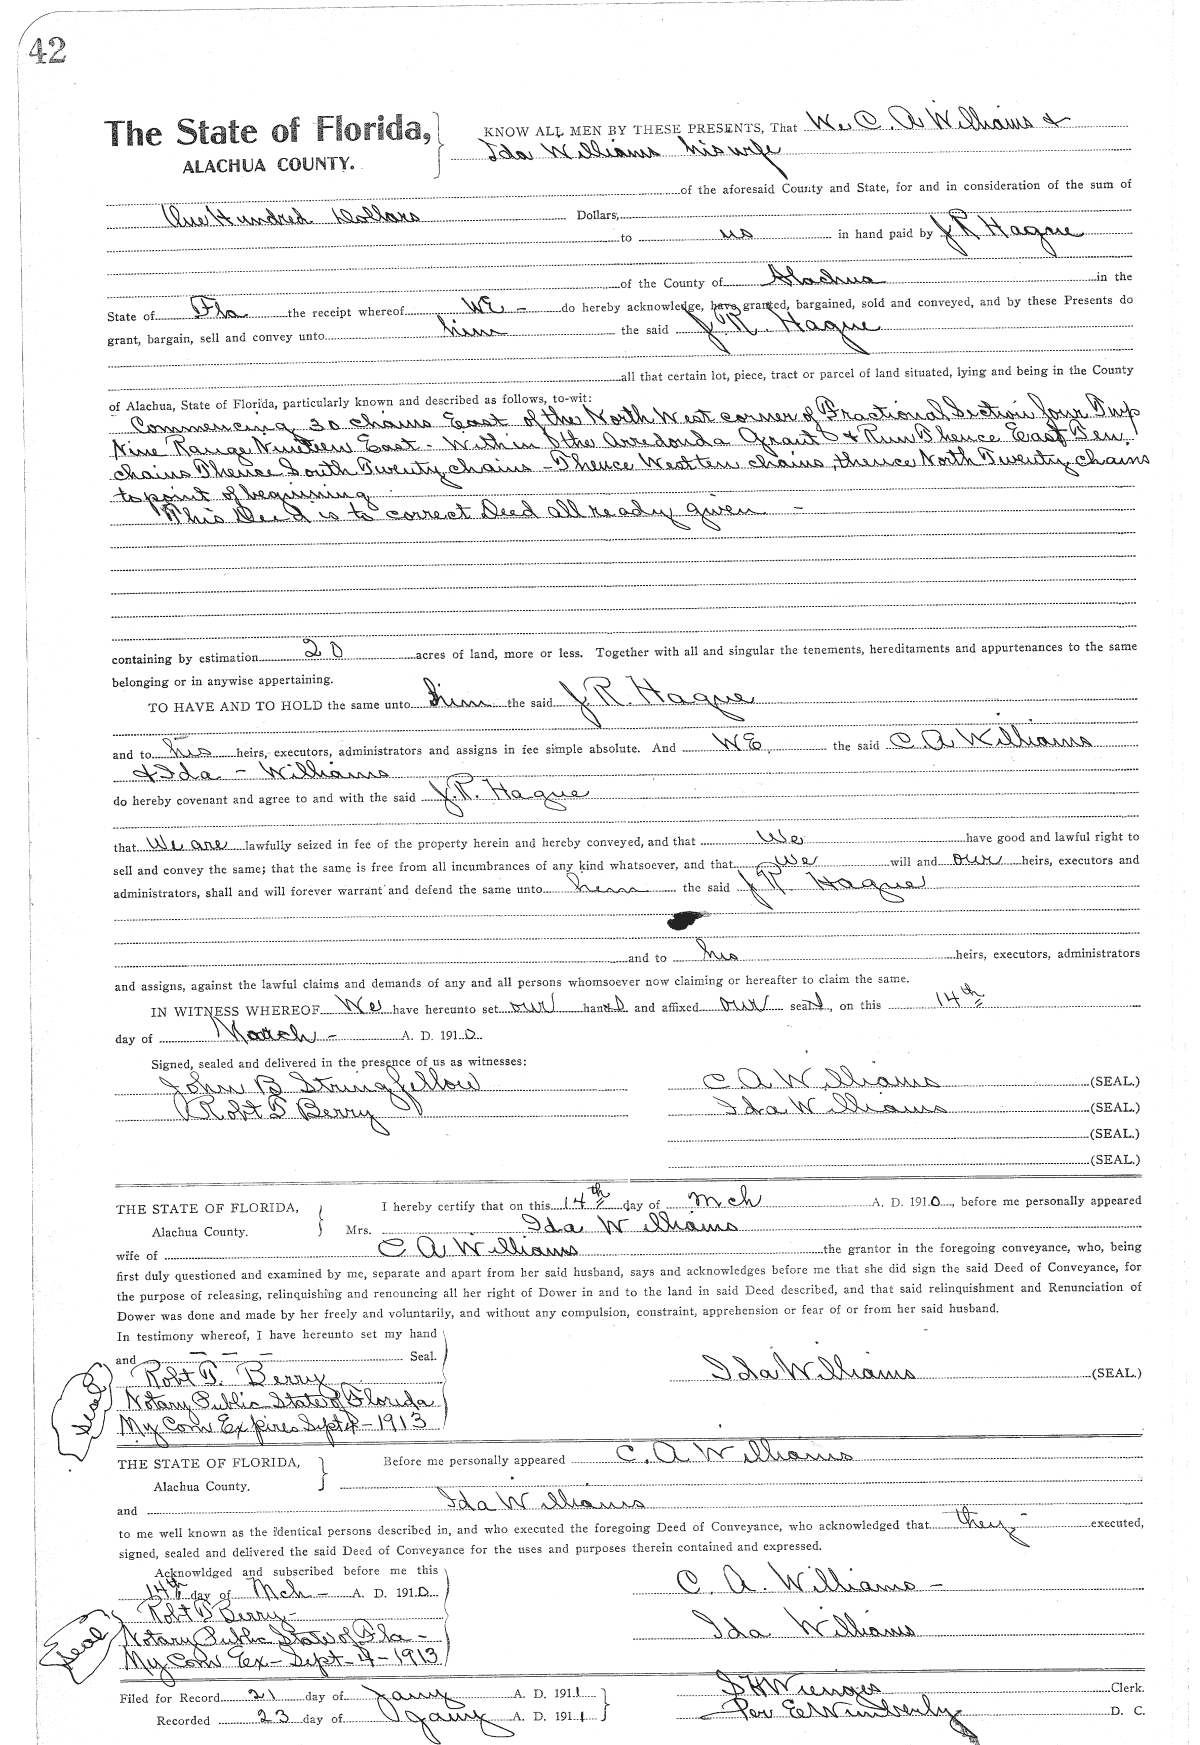 42
The State of Florida, KNOW ALL MEN BY THESE PRESENTS, That We C. A Williams &
ALACHUA COUNTY. Ida Williams his wife
of the aforesaid County and State, for and in consideration of the sum of
One Hundred Dollars Dollars,
to us in hand paid by J R Hague
of the County of Alachua in the
State of Fla the receipt whereof WE - do hereby acknowledge, have granted, bargained, sold and conveyed, and by these Presents do
grant, bargain, sell and convey unto him the said J. R. Hague
all that certain lot, piece, tract or parcel of land situated, lying and being in the County
of Alachua, State of Florida, particularly known and described as follows, to-wit:
Commencing 30 chains East of the North West corner of Fractional Section four Twp
Nine Range Nineteen East - Within the Arredonda Grant & Run Thence East Ten
chains Thence South Twenty chains - Thence West ten chains, thence North Twenty chains
to point of beginning
This Deed is to correct Deed all ready given -
containing by estimation 20 acres of land, more or less. Together with all and singular the tenements, hereditaments and appurtenances to the same
belonging or in anywise appertaining.
TO HAVE AND TO HOLD the same unto him the said J. R. Hague
and to his heirs, executors, administrators and assigns in fee simple absolute. And WE the said C. A Williams
& Ida - Williams
do hereby covenant and agree to and with the said J. R. Hague
that We are lawfully seized in fee of the property herein and hereby conveyed, and that We have good and lawful right to
sell and convey the same; that the same is free from all incumbrances of any kind whatsoever, and that we will and our heirs, executors and
administrators, shall and will forever warrant and defend the same unto him the said J R Hague
and to his heirs, executors, administrators
and assigns, against the lawful claims and demands of any and all persons whomsoever now claiming or hereafter to claim the same.
IN WITNESS WHEREOF We have hereunto set our hands and affixed our seals, on this 14th
day of March - A. D. 1910.
Signed, sealed and delivered in the presence of us as witnesses:
John B Stringfellow C A Williams (SEAL.)
Robt T Berry Ida Williams (SEAL.)
(SEAL.)
(SEAL.)
THE STATE OF FLORIDA, I hereby certify that on this 14th day of Mch A. D. 1910, before me personally appeared
Alachua County. Mrs. Ida Williams
wife of C A Williams the grantor in the foregoing conveyance, who, being
first duly questioned and examined by me, separate and apart from her said husband, says and acknowledges before me that she did sign the said Deed of Conveyance, for
the purpose of releasing, relinquishing and renouncing all her right of Dower in and to the land in said Deed described, and that said relinquishment and Renunciation of
Dower was done and made by her freely and voluntarily, and without any compulsion, constraint, apprehension or fear of or from her said husband.
In testimony whereof, I have hereunto set my hand
and - - - Seal.
Robt T. Berry Ida Williams (SEAL.)
Seal Notary Public State of Florida
My Com Expires Sept 4 - 1913
THE STATE OF FLORIDA, Before me personally appeared C. A Williams
Alachua County.
and Ida Williams
to me well known as the identical persons described in, and who executed the foregoing Deed of Conveyance, who acknowledged that they - executed,
signed, sealed and delivered the said Deed of Conveyance for the uses and purposes therein contained and expressed.
Acknowldged and subscribed before me this
14th day of Mch - A. D. 1910. C. A. Williams -
Robt T Berry -
Seal Notary Public State of Fla - Ida Williams
My Com Ex - Sept - 4 - 1913
Filed for Record 21 day of Jany A. D. 1911 S H Wienges Clerk.
Recorded 23 day of Jany A. D. 1911 Per E Wimberly D. C.